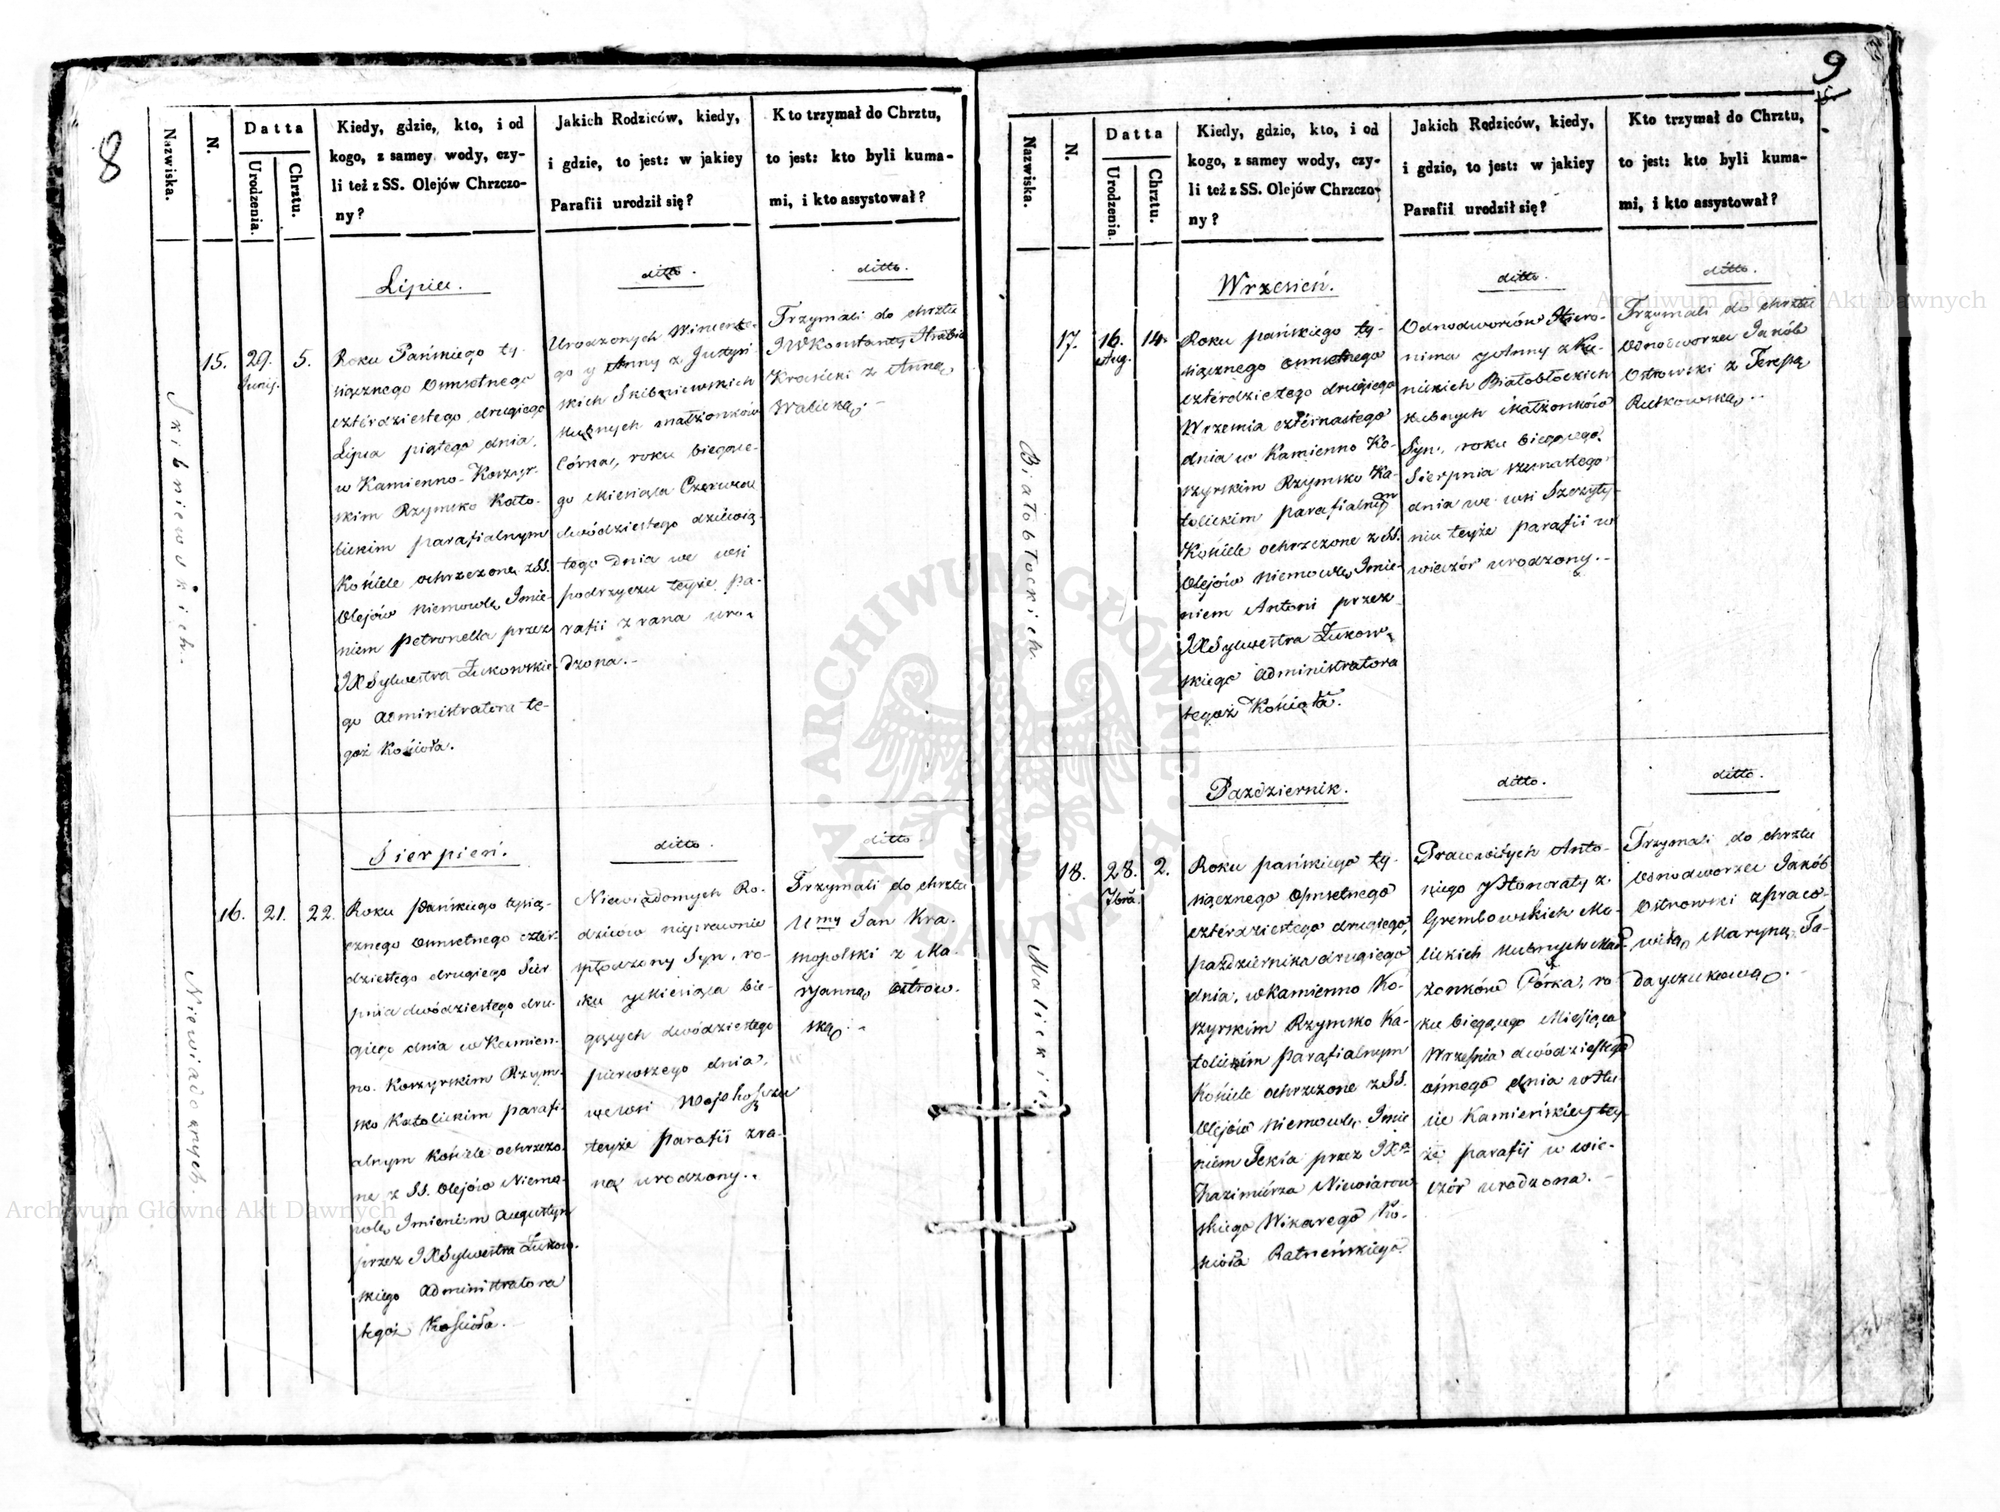 8
Nazwiska.
N.
Datta
Urodzenia.
Chrztu.
Kiedy, gdzie, kto, i od
kogo, z samey wody, czy-
li też z SS. Olejów Chrzczo-
ny?
Jakich Rodziców, kiedy,
i gdzie, to jest: w jakiey
Parafii urodził się?
Kto trzymał do Chrztu,
to jest: kto byli kuma-
mi, i kto assystował?
Skibniewskich.
15.
29.
Junij.
5.
Lipiec.
Roku Pańskiego ty-
siącznego osmsetnego
czterdziestego drugiego
Lipca piątego dnia,
w Kamienno-Koszyr-
skim Rzymsko Kato-
lickim parafialnym
Kościele ochrzczone z SS.
Olejów niemowlę, Imie-
niem Petronella przez
JX Sylwestra Żukowskie-
go Administratora te-
goż Kościoła.
ditto.
Urodzonych Wincente-
go y Anny z Justyń
skich Skibniewskich
ślubnych małżonków
Córka, roku bieżące-
go Miesiąca Czerwca
dwódziestego dziewią-
tego dnia we wsi
podrzyczu teyże pa-
rafii z rana uro-
dzona.-
ditto.
Trzymali do chrztu
JW Konstanty Hrabia
Krasicki z Anną
Walicką.-
Niewiadomych.
16.
21.
22.
Sierpień.
Roku Pańskiego tysią-
cznego osmsetnego czter-
dziestego drugiego Sier
pnia dwódziestego dru-
giego dnia w Kamien-
no-Koszyrskim Rzym-
sko Katolickim parafi-
alnym Kościele ochrzczo-
ne z SS. Olejów Niemo-
wlę, Imieniem Augustyn
przez JX Sylwestra Żukow-
skiego Administratora
tegoż Kościoła.-
ditto.
Niewiadomych Ro-
dziców nieprawnie
spłodzony Syn, ro-
ku y Miesiąca bie-
żących dwódziestego
pierwszego dnia,
we wsi
teyże parafii z ra-
na urodzony.-
ditto.
Trzymali do chrztu
Umy Jan Kra-
snopolski z Ma-
ryanną Ostrow-
ską.-
9
Nazwiska.
N.
Datta
Urodzenia.
Chrztu.
Kiedy, gdzie, kto, i od
kogo, z samey wody, czy-
li też z SS. Olejów Chrzczo-
ny?
Jakich Rodziców, kiedy,
i gdzie, to jest: w jakiey
Parafii urodził się?
Kto trzymał do Chrztu,
to jest: kto byli kuma-
mi, i kto assystował?
Białobłockich.
17.
16.
Aug.
14.
Wrzesień.
Roku pańskiego ty-
siącznego osmsetnego
czterdziestego drugiego
Września czternastego
dnia w Kamienno Ko-
szyrskim Rzymsko Ka-
tolickim parafialnym
Kościele ochrzczone z SS.
Olejów niemowlę, Imie-
niem Antoni przez
JX Sylwestra Żukow-
skiego Administratora
tegoż Kościoła.
ditto.
Odnodworców Hiero-
nima y Anny z Ku-
nickich Białobłockich
ślubnych Małżonków
Syn, roku bieżącego,
Sierpnia szesnastego
dnia we wsi Szczyty-
niu teyże parafii w
wieczór urodzony.-
ditto.
Trzymali do chrztu
Odnodworzec Jakób
Ostrowski z Teresą
Rutkowską.-
Malickich
18.
28.
7bra.
2.
Październik.
Roku pańskiego ty-
siącznego osmsetnego
czterdziestego drugiego,
października drugiego
dnia, w Kamienno Ko-
szyrskim Rzymsko Ka-
tolickim parafialnym
Kościele ochrzczone z SS.
Olejów niemowlę, Imie
niem Tekla przez JXa
Kazimierza Niewiarow
skiego Wikarego Ko-
ścioła Ratneńskiego.
ditto.
Prawowitych Anto-
niego y Honoraty z
Grembowskich Ma-
lickich ślubnych Mał-
żonków Córka, ro-
ku bieżącego Miesiąca
Września dwódziestego
ósmego dnia w Hu-
cie Kamieńskiey tey-
że parafij w wie-
czór urodzona.-
ditto.
Trzymali do chrztu
Odnodworzec Jakób
Ostrowski z prawo-
witą Maryną Fa-
Archiwum Główne Akt Dawnych
Archiwum Główne Akt Dawnych
ARCHIWUM GŁÓWNE AKT DAWNYCH